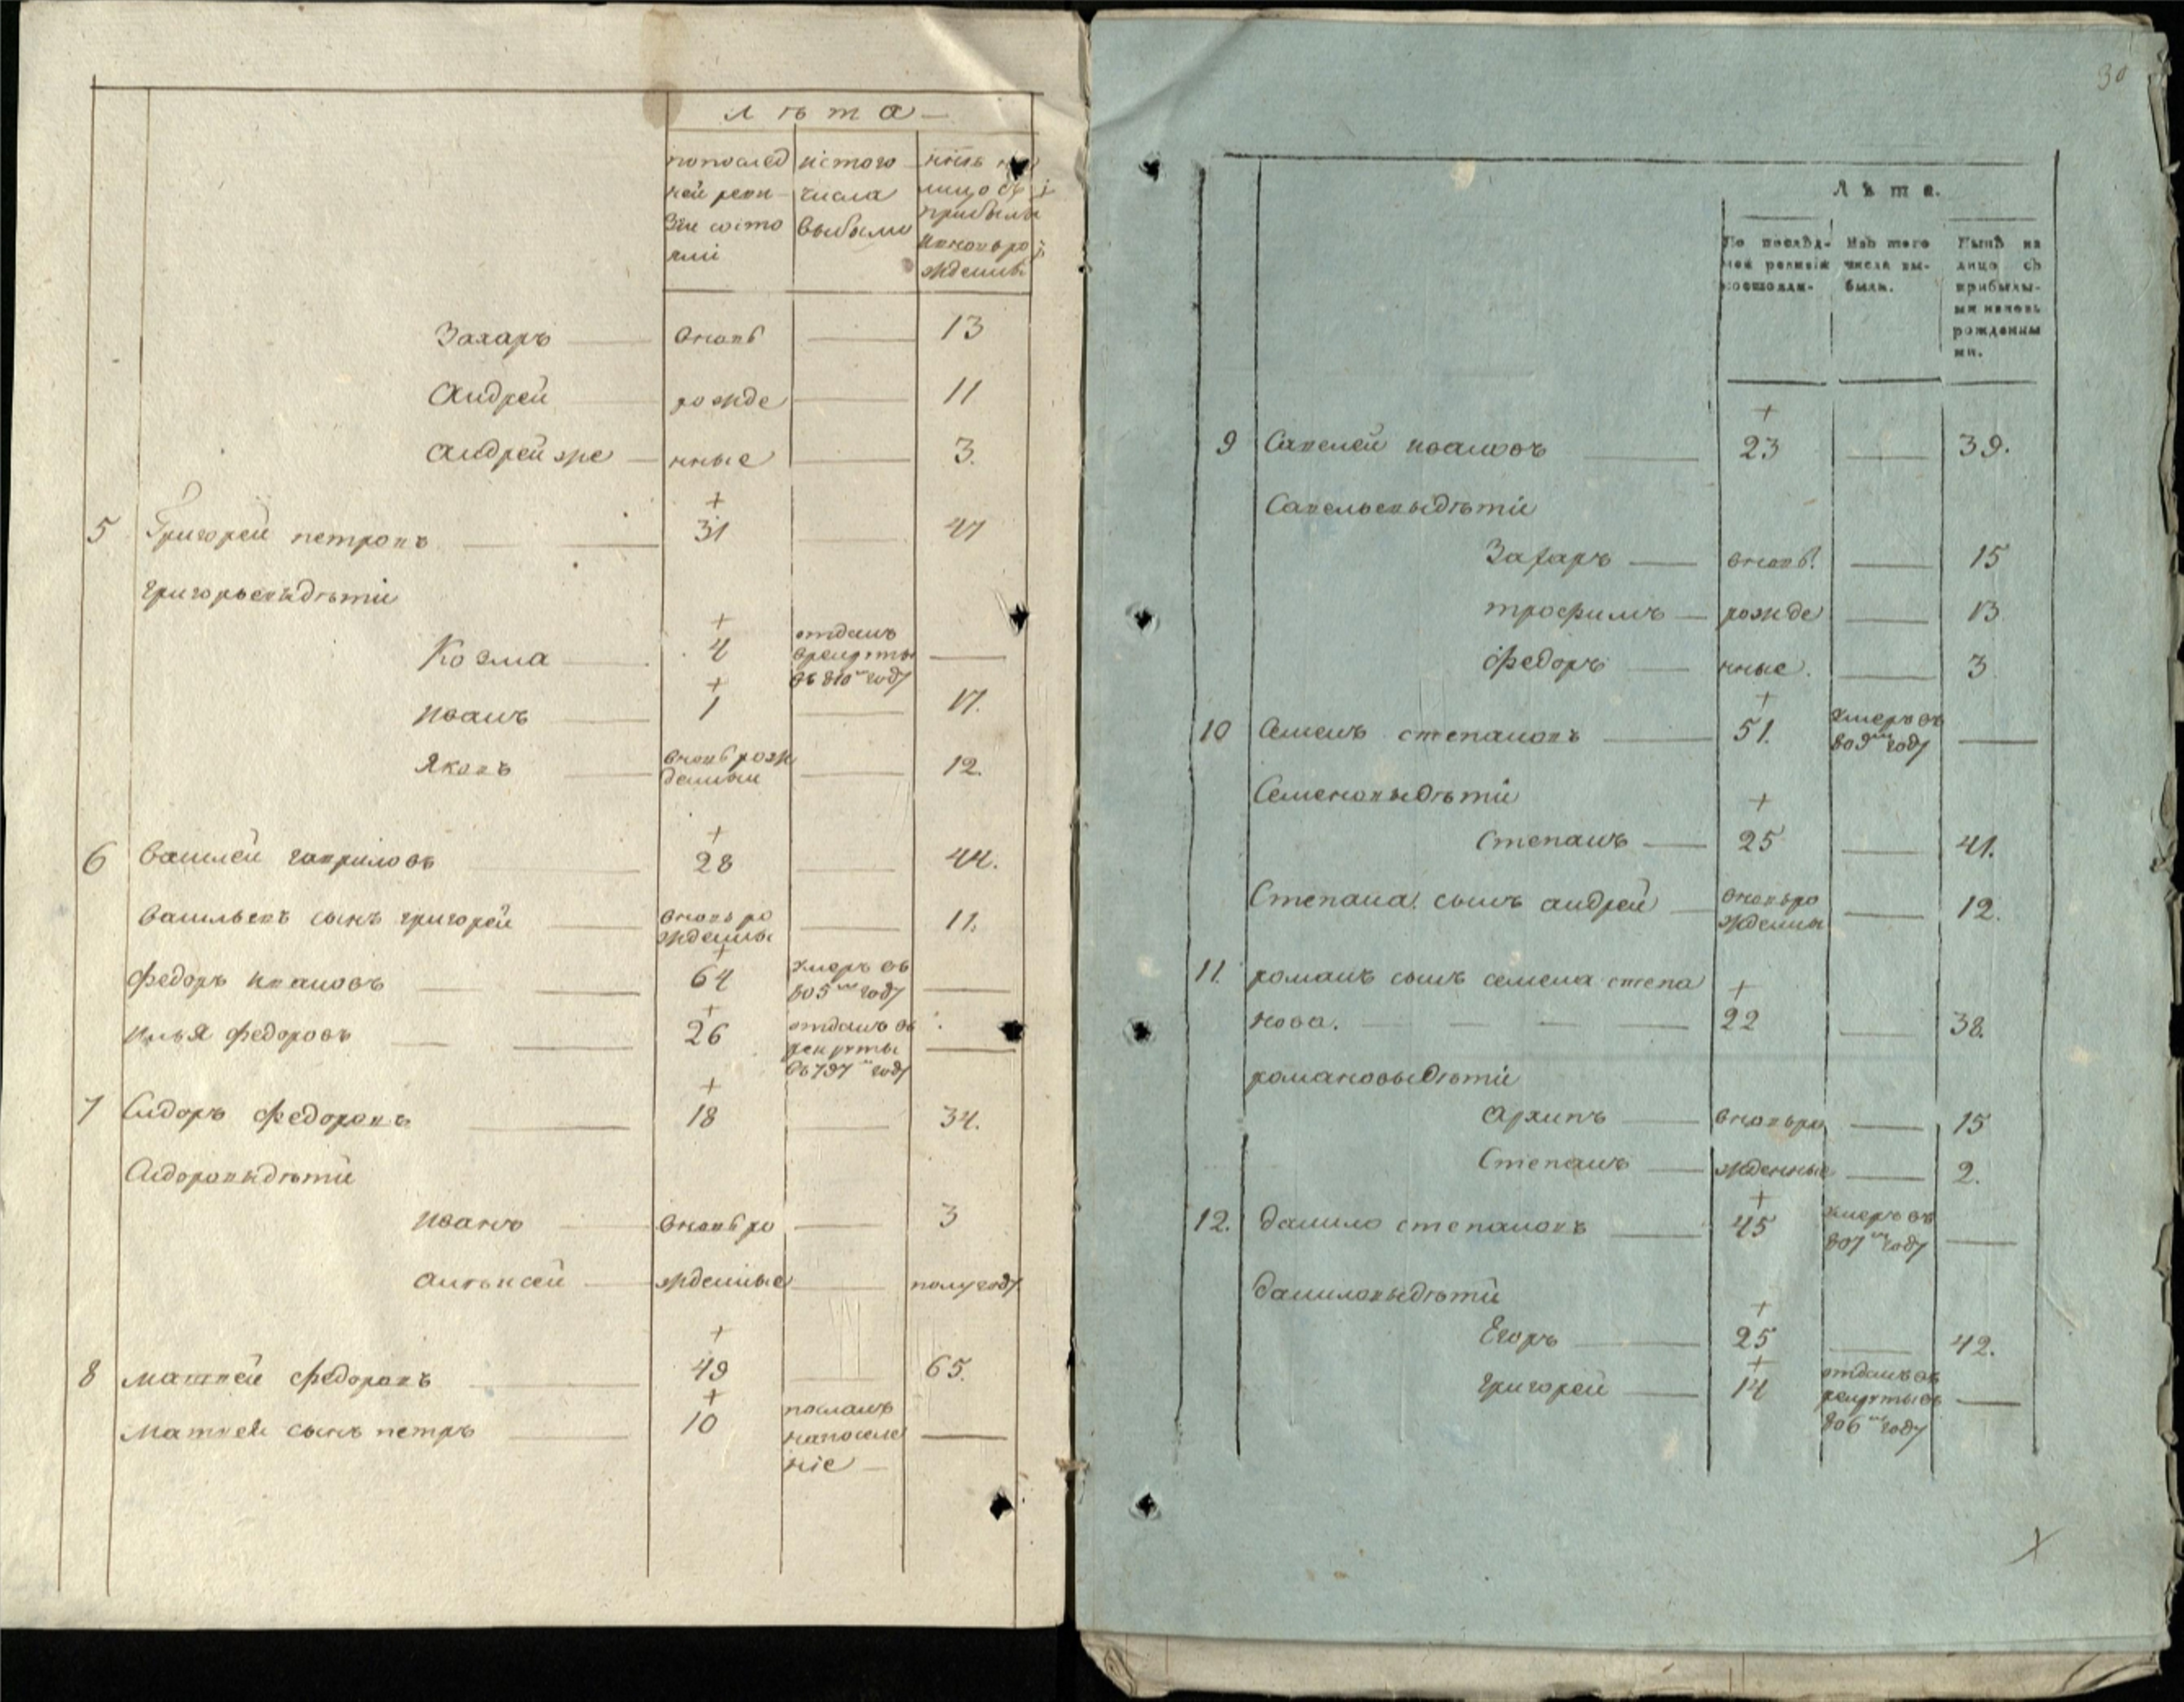 Лѣта
попослѣд ней реви зіи состо яли | истого числа выбыло | нынѣ на лицо съ прибылы ивновьро жденны
Захаръ — вновь — 13
Андрей — рожде — 11
Андрей же — нные — 3.
+
5 Григорей петровъ — 31 — 47
григорьевыдѣти
+
Козма — 4 отданъ врекруты въ 810м году —
+
иванъ — 1 — 17.
Яковъ — вновь рож денныи — 12.
+
6 василей гавриловъ — 28 — 44.
васильевъ сынъ григорей — вновь ро жденны — 11.
+
федоръ ивановъ — 64 умеръ въ 805м году —
+
илья федоровъ — 26 отданъ въ рекруты въ 797м году —
+
7 Сидоръ федоровъ — 18 — 34.
Сидоровыдѣти
иванъ — вновь ро — 3
алѣксей — жденные — полугоду
+
8 матвей федоровъ — 49 — 65.
+
матвея сынъ петръ — 10 посланъ напоселе ніе —
30
Лѣта.
По послѣд- ней ревизіи состояли- | Изъ того числа вы- были. | Нынѣ на лицо съ прибылы- ми иновь рожденны ми.
+
9 Савелей ивановъ — 23 — 39.
Савельевыдѣти
Захаръ — вновь — 15
трофимъ — рожде — 13
федоръ — нные. — 3
+
10 Семенъ степановъ — 51. умеръ въ 809м году —
Семеновыдѣти
+
степанъ — 25 — 41.
Степана сынъ андрей — вновьро жденны — 12.
11. романъ сынъ семена степа
+
нова. — 22 — 38.
романовыдѣти
архипъ — вновьро — 15
Степанъ — жденные — 2.
+
12. данило степановъ — 45 умеръ въ 807м году —
даниловыдѣти
+
Егоръ — 25 — 42.
+
григорей — 14 отданъ въ рекруты въ 806м году —